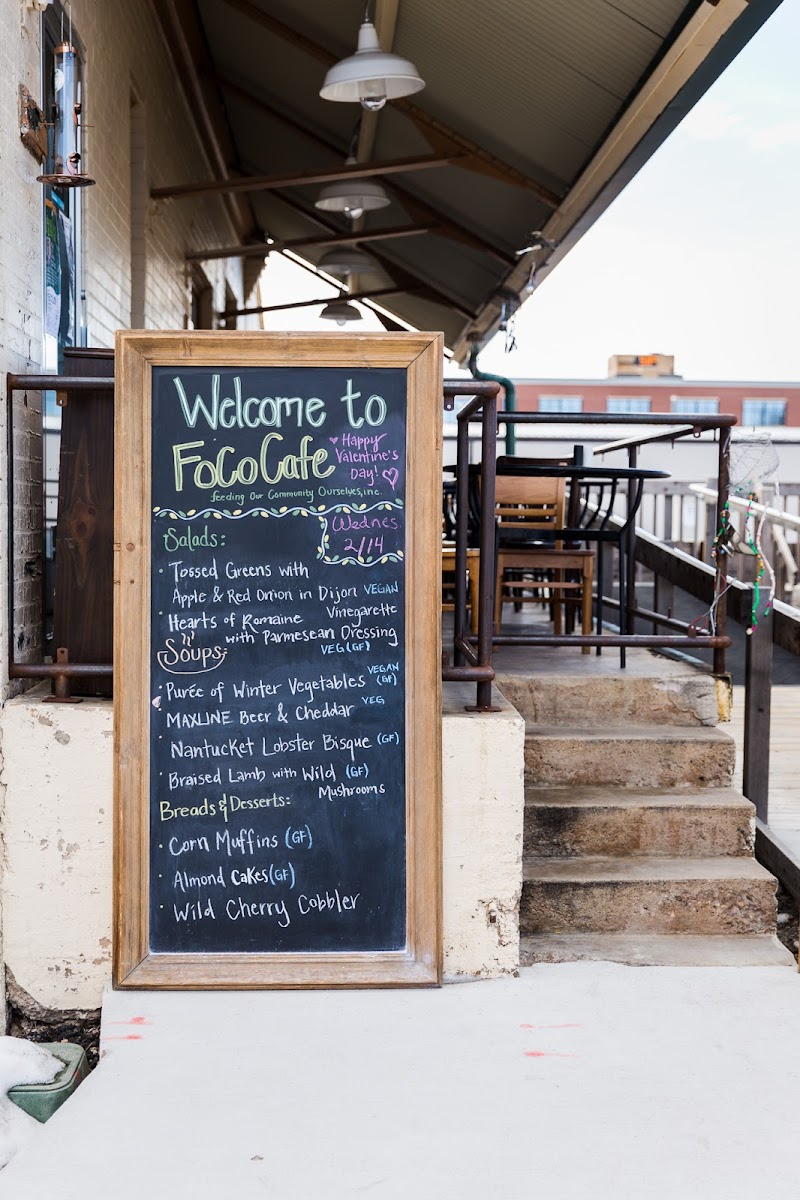 Welcome to
FoCo Cafe
Happy
Valentine's
Day!
feeding Our Community Ourselves, inc.
Wednes
2/14
Salads:
Tossed Greens with
Apple & Red Onion in Dijon VEGAN
Vinegarette
Hearts of Romaine
with Parmesean Dressing
VEG (GF)
Soups
Purée of Winter Vegetables VEGAN (GF)
MAXLINE Beer & Cheddar VEG
Nantucket Lobster Bisque (GF)
Braised Lamb with Wild (GF)
Mushrooms
Breads & Desserts:
Corn Muffins (GF)
Almond Cakes (GF)
Wild Cherry Cobbler